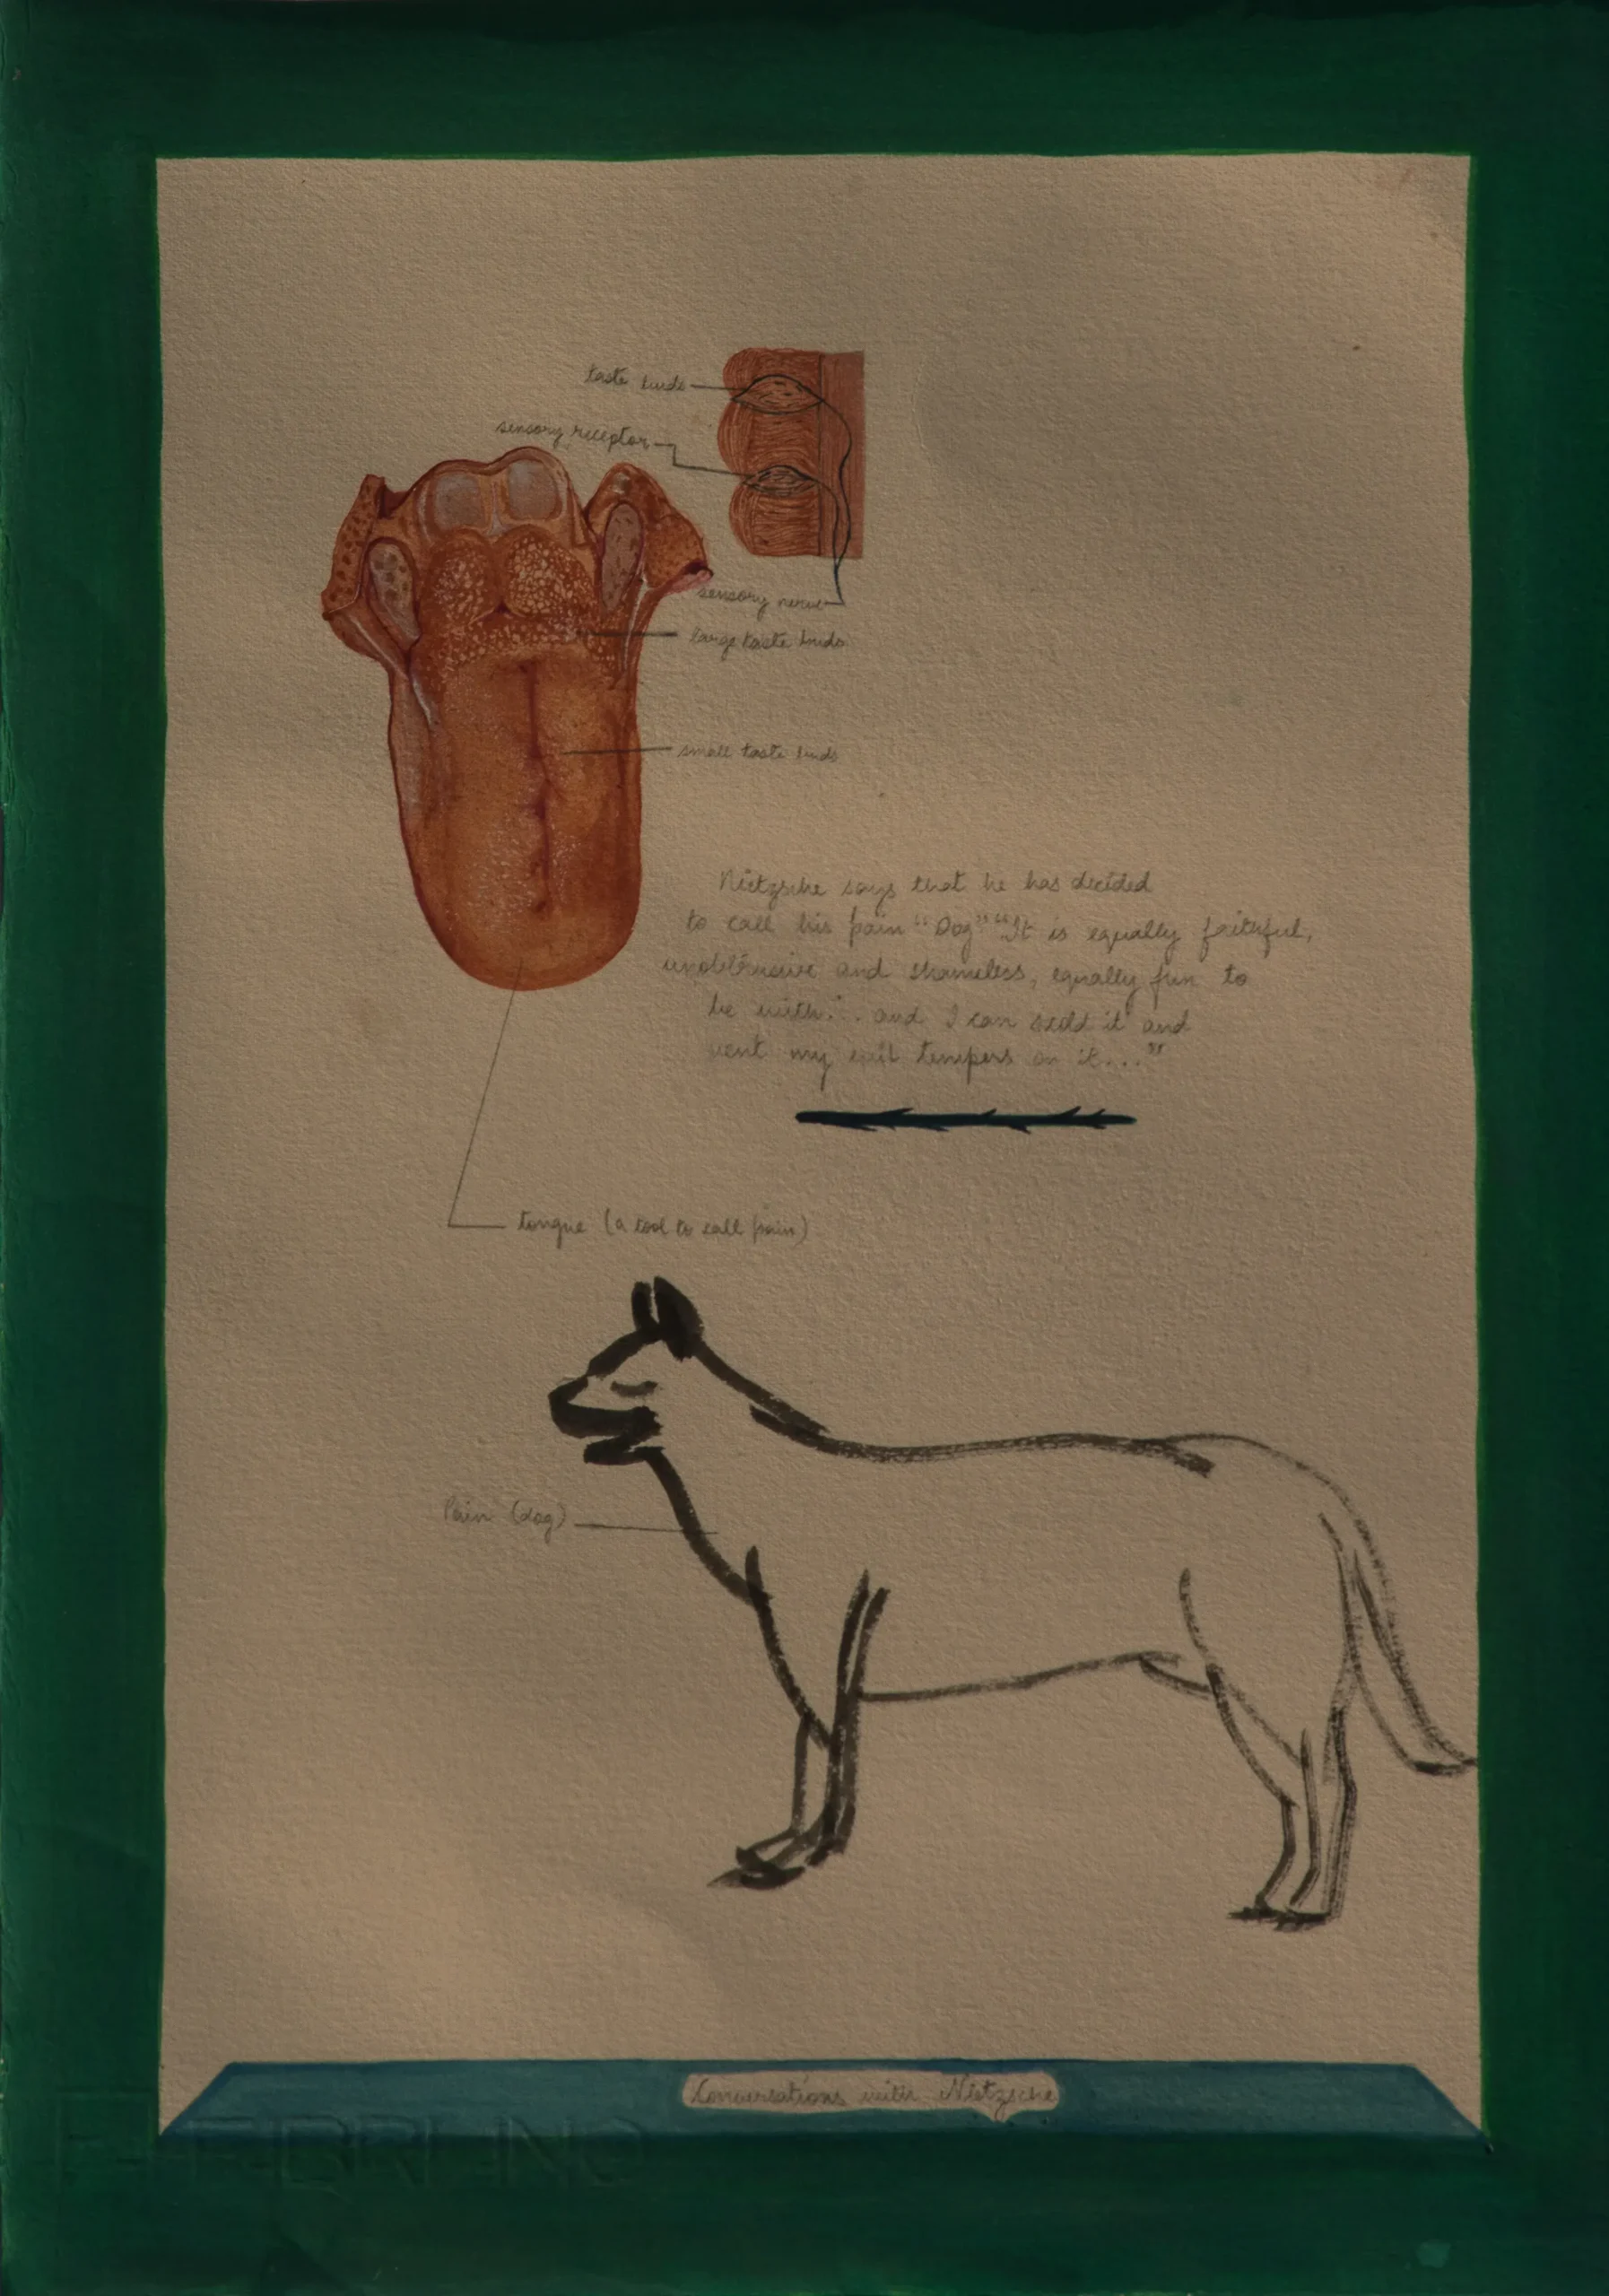 taste buds
sensory receptor
sensory nerve
large taste buds
small taste buds
Nietzsche says that he has decided
to call his pain "Dog" "It is equally faithful,
unobtrusive and shameless, equally fun to
be with... and I can scold it and
vent my evil tempers on it..."
tongue (a tool to call pain)
Pain (dog)
Conversations with Nietzsche
FABRIANO